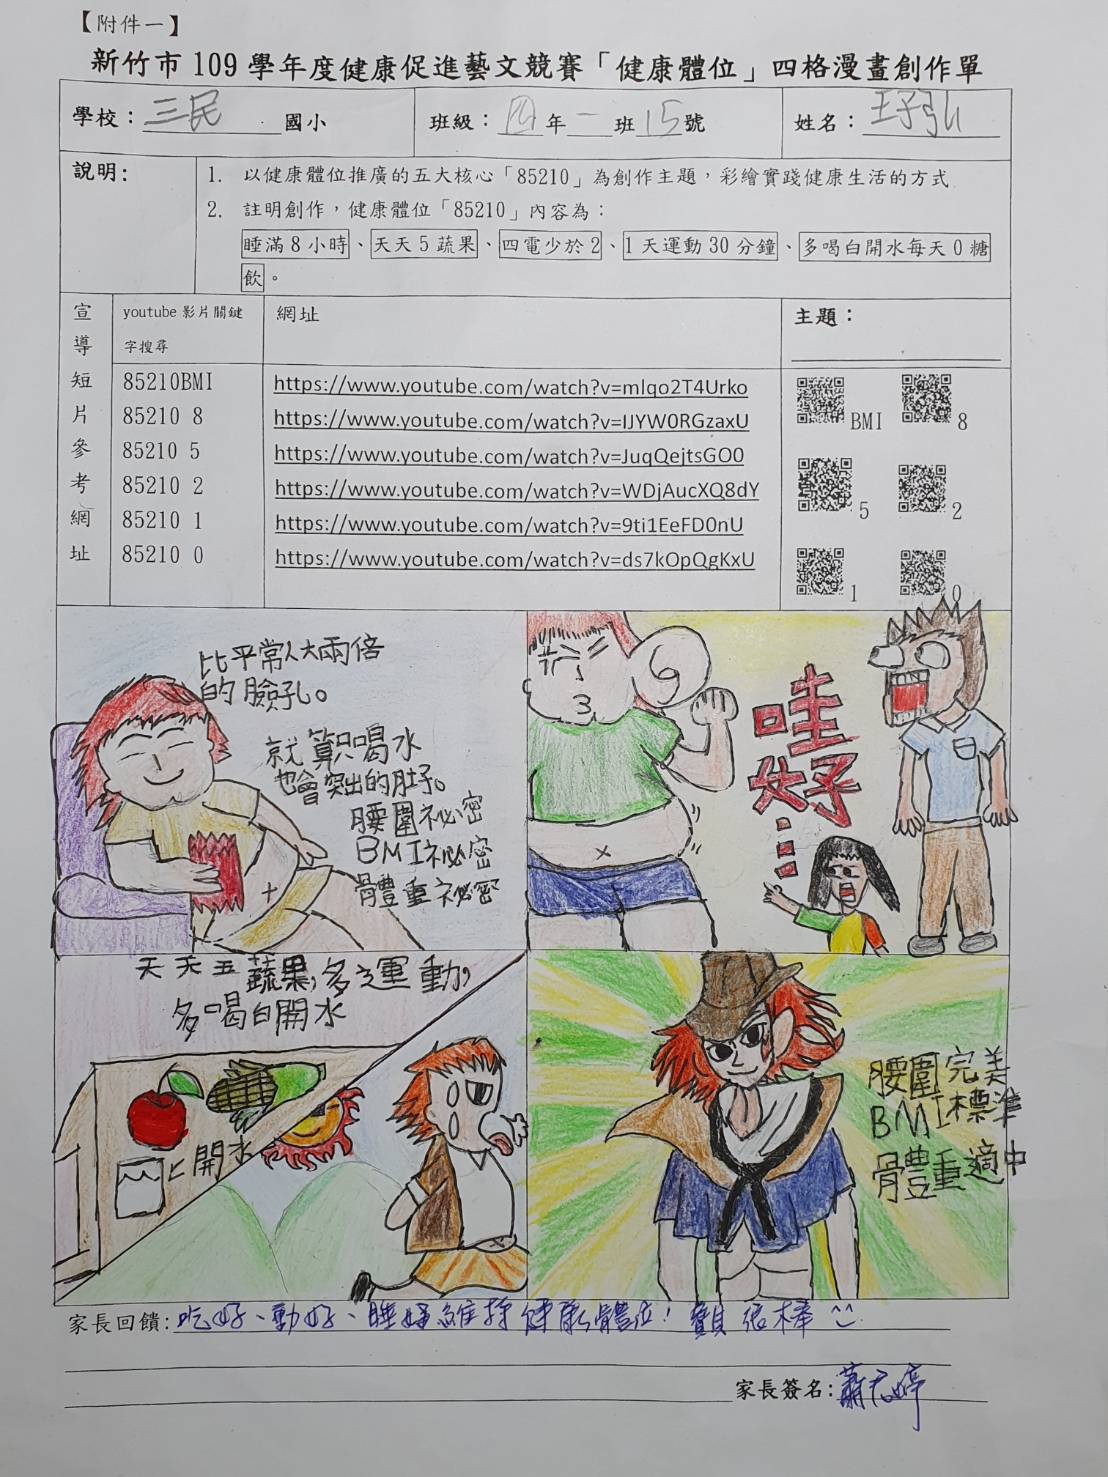 【附件一】
新竹市 109 學年度健康促進藝文競賽「健康體位」四格漫畫創作單
學校：三民 國小
班級：四年一班15號
姓名：王子弘
說明：
1. 以健康體位推廣的五大核心「85210」為創作主題，彩繪實踐健康生活的方式
2. 註明創作，健康體位「85210」內容為：
睡滿8小時、天天5蔬果、四電少於2、1天運動30分鐘、多喝白開水每天0糖
飲。
宣導短片參考網址
youtube 影片關鍵
字搜尋
網址
主題：
85210BMI https://www.youtube.com/watch?v=mlqo2T4Urko
85210 8 https://www.youtube.com/watch?v=IJYW0RGzaxU
85210 5 https://www.youtube.com/watch?v=JuqQejtsGO0
85210 2 https://www.youtube.com/watch?v=WDjAucXQ8dY
85210 1 https://www.youtube.com/watch?v=9ti1EeFD0nU
85210 0 https://www.youtube.com/watch?v=ds7kOpQgKxU
BMI 8
5 2
1 0
比平常人大兩倍
的臉孔。
就算只喝水
也會突出的肚子。
腰圍祕密
BMI祕密
體重祕密
哇
好
…
天天五蔬果，多運動，
多喝白開水
開水
腰圍完美
BMI標準
體重適中
家長回饋：吃好、動好、睡好維持健康體位！ 很棒
家長簽名：蕭 婷